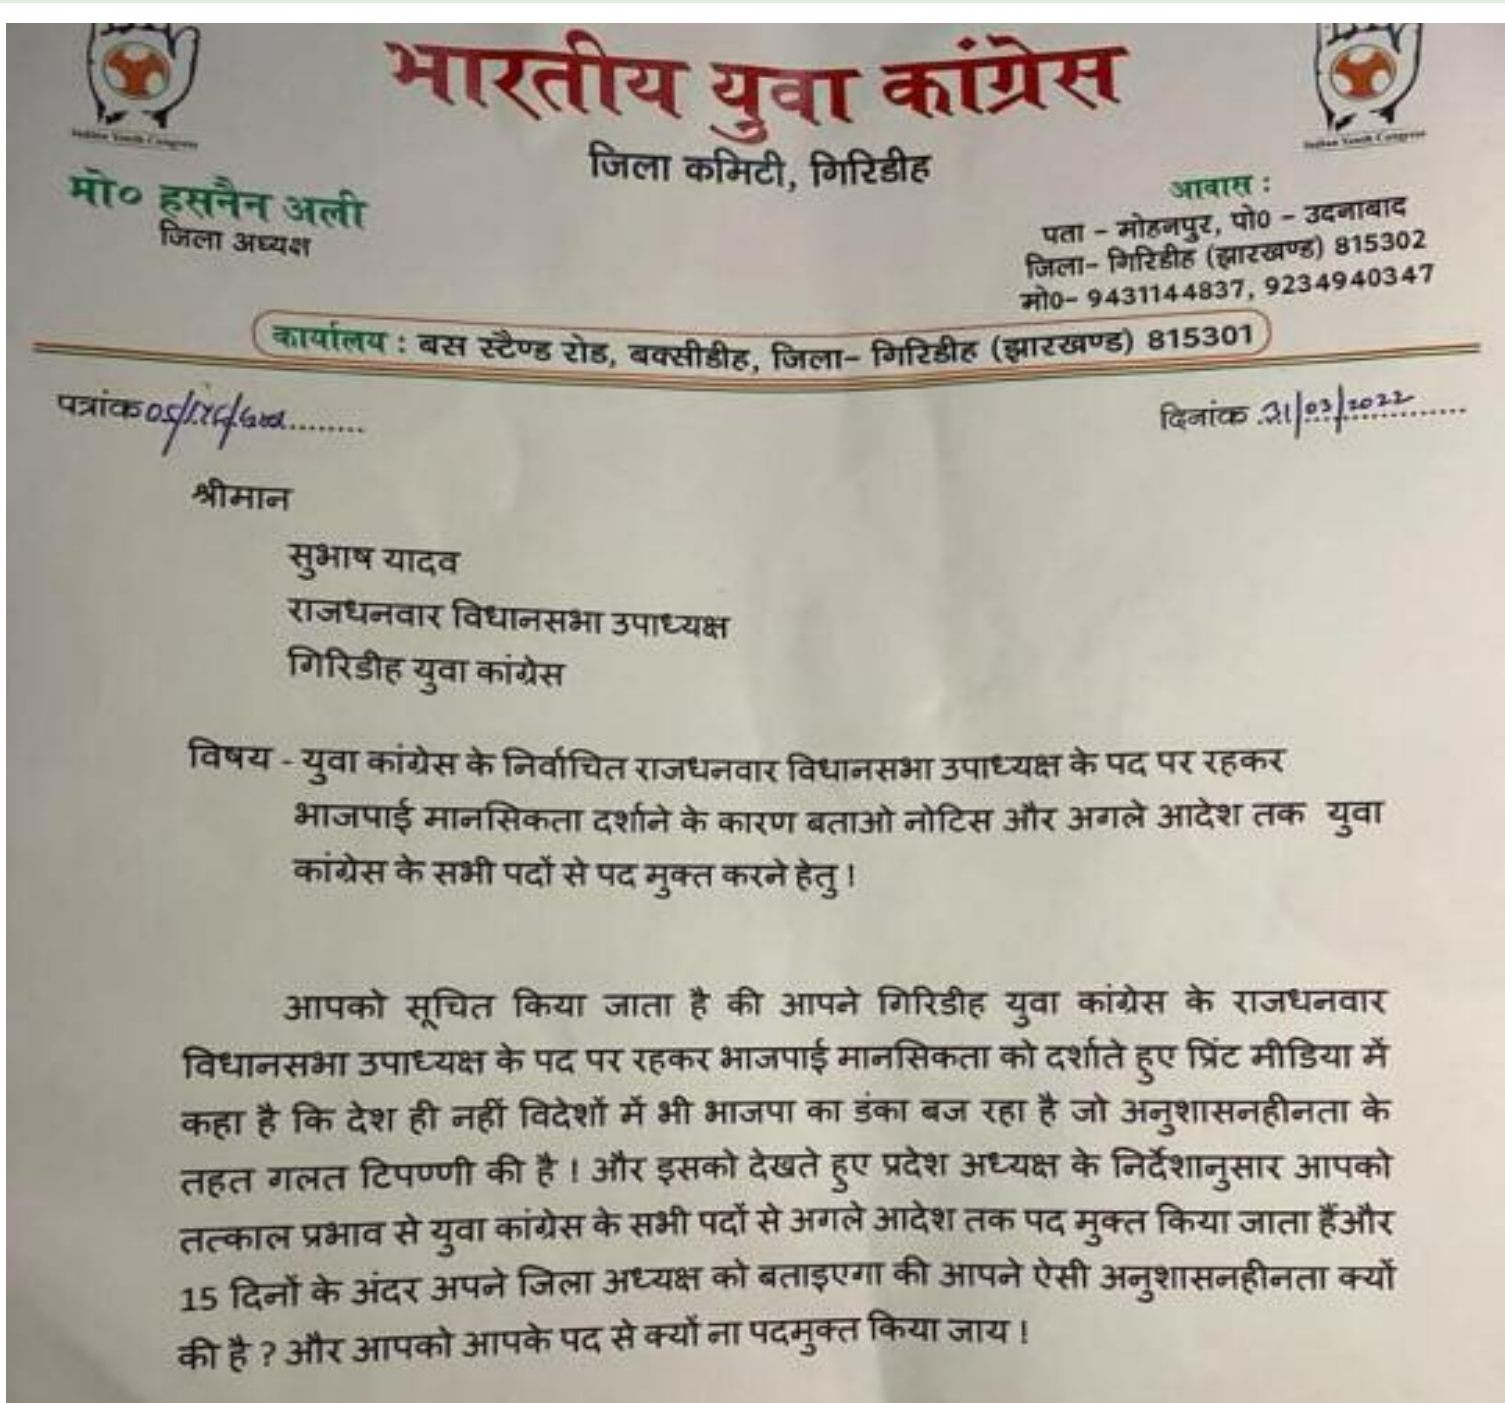 भारतीय युवा कांग्रेस
जिला कमिटी, गिरिडीह
Indian Youth Congress
Indian Youth Congress
मो० हसनैन अली
जिला अध्यक्ष
आवास :
पता - मोहनपुर, पो0 - उदनाबाद
जिला- गिरिडीह (झारखण्ड) 815302
मो0- 9431144837, 9234940347
कार्यालय : बस स्टैण्ड रोड, बक्सीडीह, जिला- गिरिडीह (झारखण्ड) 815301
पत्रांक
दिनांक 31/03/2022
श्रीमान
सुभाष यादव
राजधनवार विधानसभा उपाध्यक्ष
गिरिडीह युवा कांग्रेस
विषय - युवा कांग्रेस के निर्वाचित राजधनवार विधानसभा उपाध्यक्ष के पद पर रहकर
भाजपाई मानसिकता दर्शाने के कारण बताओ नोटिस और अगले आदेश तक युवा
कांग्रेस के सभी पदों से पद मुक्त करने हेतु !
आपको सूचित किया जाता है की आपने गिरिडीह युवा कांग्रेस के राजधनवार
विधानसभा उपाध्यक्ष के पद पर रहकर भाजपाई मानसिकता को दर्शाते हुए प्रिंट मीडिया में
कहा है कि देश ही नहीं विदेशों में भी भाजपा का डंका बज रहा है जो अनुशासनहीनता के
तहत गलत टिपण्णी की है ! और इसको देखते हुए प्रदेश अध्यक्ष के निर्देशानुसार आपको
तत्काल प्रभाव से युवा कांग्रेस के सभी पदों से अगले आदेश तक पद मुक्त किया जाता हैंऔर
15 दिनों के अंदर अपने जिला अध्यक्ष को बताइएगा की आपने ऐसी अनुशासनहीनता क्यों
की है ? और आपको आपके पद से क्यों ना पदमुक्त किया जाय !